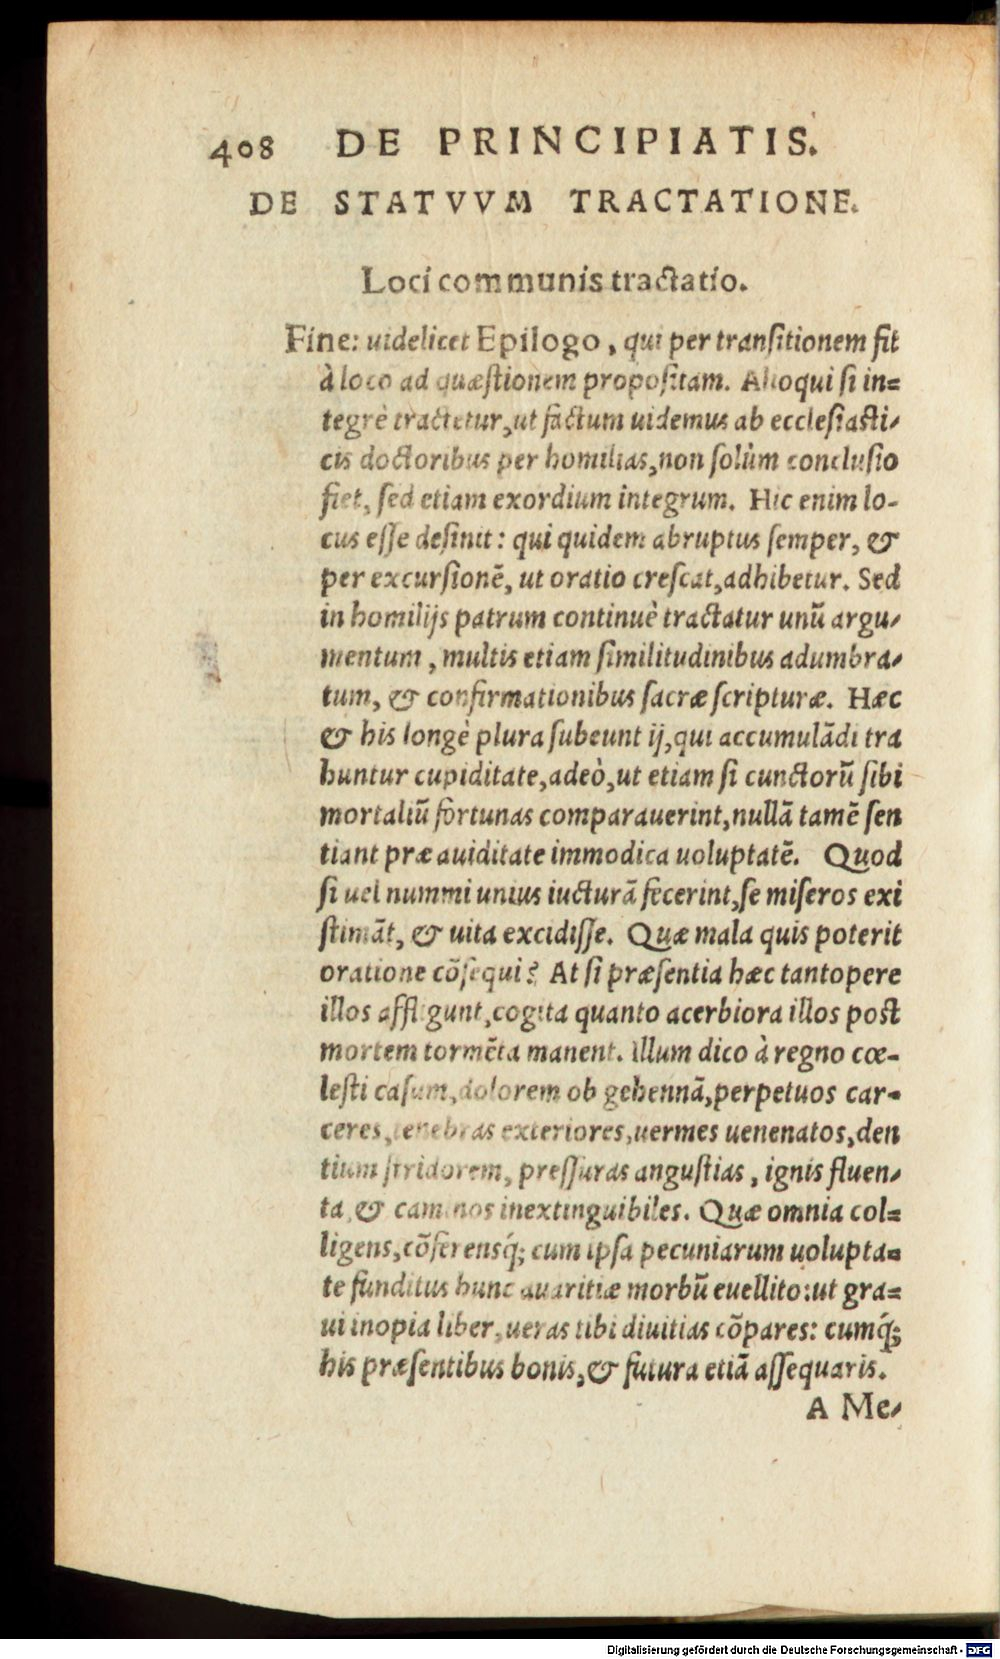 408 DE PRINCIPIATIS.
DE STATVVM TRACTATIONE.
Loci communis tractatio.
Fine: uidelicet Epilogo, qui per transitionem fit
à loco ad quæstionem propositam. Alioqui si in=
tegrè tractetur, ut factum uidemus ab ecclesiasti-
cis doctoribus per homilias, non solùm conclusio
fiet, sed etiam exordium integrum. Hic enim lo-
cus esse desinit: qui quidem abruptus semper, &
per excursionē, ut oratio crescat, adhibetur. Sed
in homilijs patrum continuè tractatur unū argu-
mentum, multis etiam similitudinibus adumbra-
tum, & confirmationibus sacræ scripturæ. Hæc
& his longè plura subeunt ij, qui accumulādi tra
huntur cupiditate, adeò, ut etiam si cunctorū sibi
mortaliū fortunas comparauerint, nullā tamē sen
tiant præ auiditate immodica uoluptatē. Quod
si uel nummi unius iucturā fecerint, se miseros exi
stimāt, & uita excidisse. Quæ mala quis poterit
oratione cōsequi? At si præsentia hæc tantopere
illos affligunt, cogita quanto acerbiora illos post
mortem tormēta manent. Illum dico à regno cœ-
lesti casum, dolorem ob gehennā, perpetuos car-
ceres, tenebras exteriores, uermes uenenatos, den
tium stridorem, pressuras angustias, ignis fluen-
ta & caminos inextinguibiles. Quæ omnia col=
ligens, cōferensq́; cum ipsa pecuniarum uolupta=
te funditus hunc auaritiæ morbū euellito: ut gra=
ui inopia liber, ueras tibi diuitias cōpares: cumq́;
his præsentibus bonis, & futura etiā assequaris.
A Me-
Digitalisierung gefördert durch die Deutsche Forschungsgemeinschaft - DFG